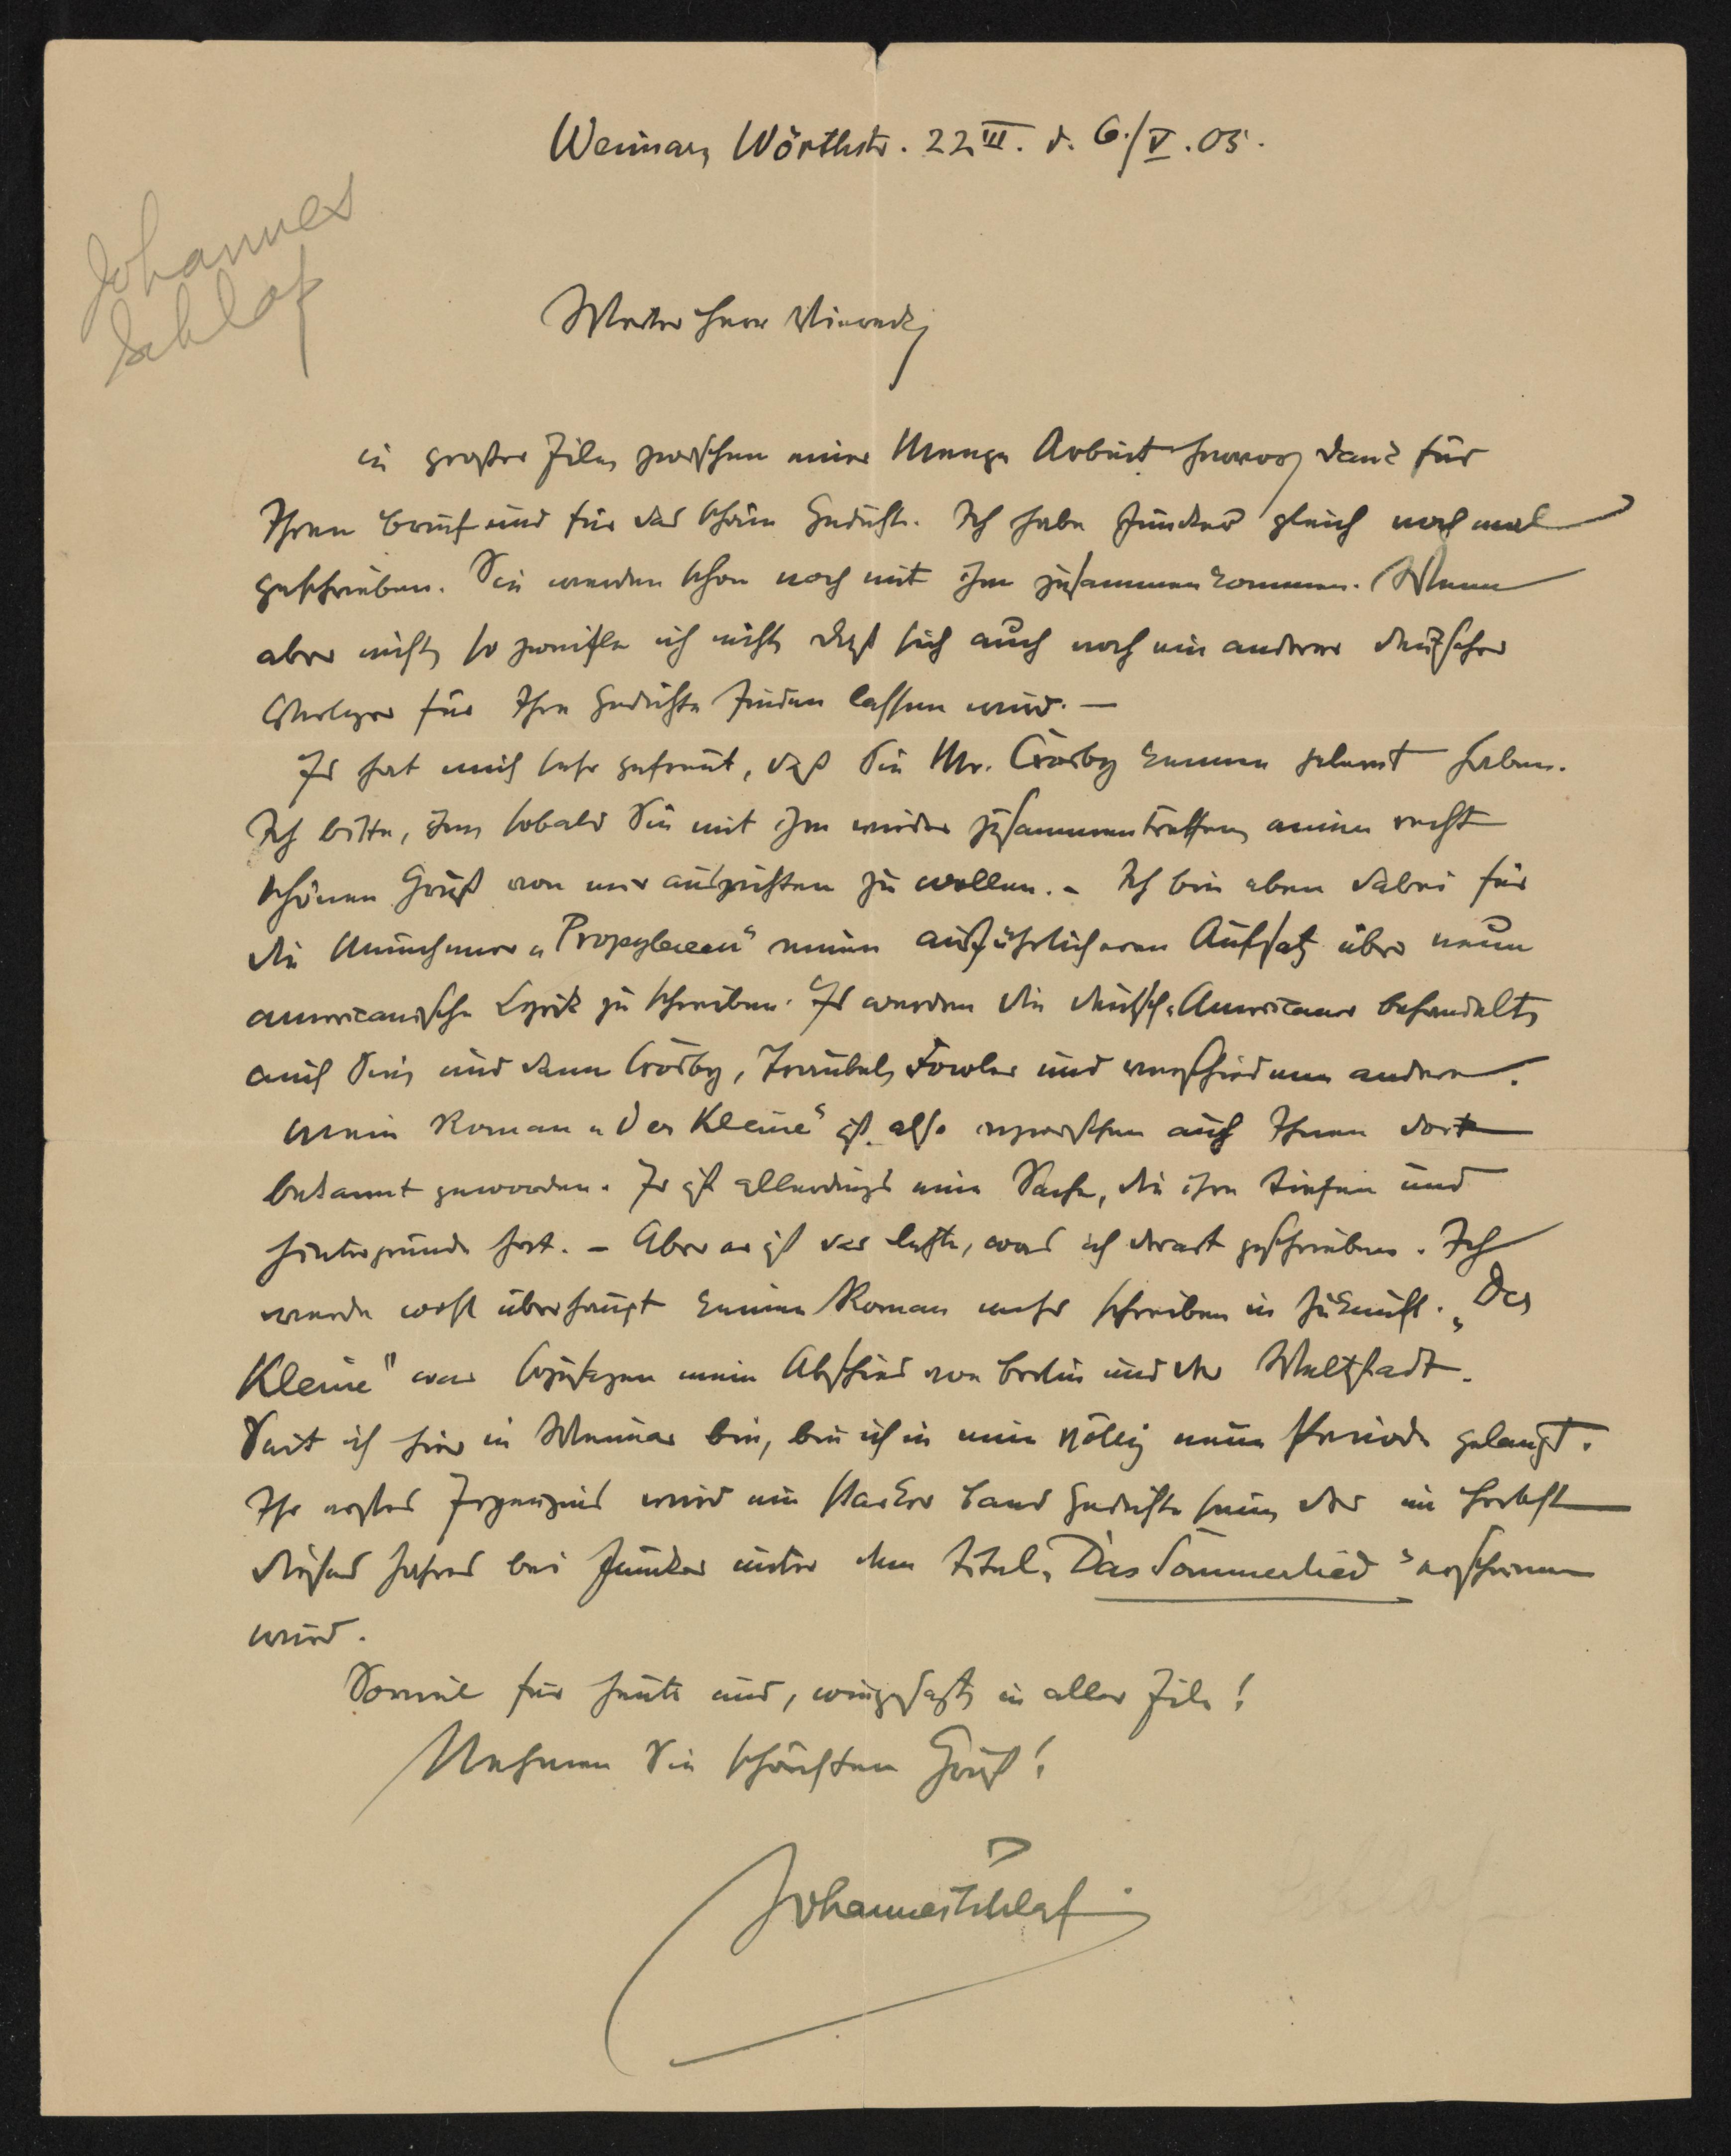 Weimar, Wörthstr. 22 III. d. 6./V. 05.
Johannes
Schlaf
Werter Herr Viereck,
in großer Eile, zwischen einer Menge Arbeit hervor, Dank für
Ihren Brief und für das schöne Gedicht. Ich habe Juncker gleich noch mal
geschrieben. Sie werden schon noch mit ihm zusammenkommen. Wenn
aber nicht, so zweifle ich nicht, daß sich auch noch ein anderer deutscher
Verleger für Ihre Gedichte finden lassen wird. —
Es hat mich sehr gefreut, daß Sie Mr. Crosby kennen gelernt haben.
Ich bitte, ihm, sobald Sie mit ihm wieder zusammentreffen, einen recht
schönen Gruß von mir ausrichten zu wollen. – Ich bin eben dabei für
die Münchener „Propylaeen“ einen ausführlicheren Aufsatz über neue
americanische Lyrik zu schreiben. Es werden die Deutsch-Americaner behandelt,
auch Sie, und dann Crosby, Traubel, Fowler und verschiedene andere.
Mein Roman „Der Kleine“ ist also inzwischen auch Ihnen dort
bekannt geworden. Er ist allerdings eine Sache, die ihre Tiefen und
Hintergründe hat. – Aber er ist das letzte, was ich derart geschrieben. Ich
werde wohl überhaupt keinen Roman mehr schreiben in Zukunft. „Der
Kleine“ war sozusagen mein Abschied von Berlin und der Weltstadt.
Seit ich hier in Weimar bin, bin ich in eine völlig neue Periode gelangt.
Ihr erstes Erzeugnis wird ein starker Band Gedichte sein, der im Herbst
dieses Jahres bei Juncker unter dem Titel „Das Sommerlied“ erscheinen
wird.
Soviel für heute und, wie gesagt, in aller Eile!
Nehmen Sie schönsten Gruß!
Johannes Schlaf.